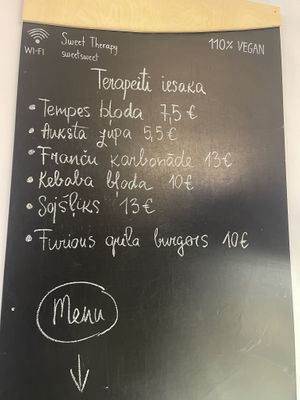 WI-FI Sweet Therapy 110% VEGAN
sweetsweet
Terapeiti iesaka
• Tempes bļoda 7,5 €
• Aukstā zupa 5,5 €
• Franču karbonāde 13 €
• Kebaba bļoda 10 €
• Sojšļiks 13 €
• Furious grila burgers 10 €
Menu